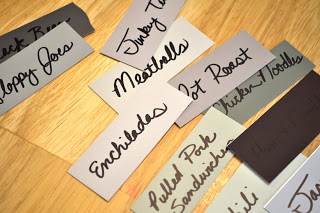 Black Bean
Sloppy Joes
Turkey
Meatballs
Pot Roast
Chicken Noodles
Enchiladas
Pulled Pork
Sandwiches